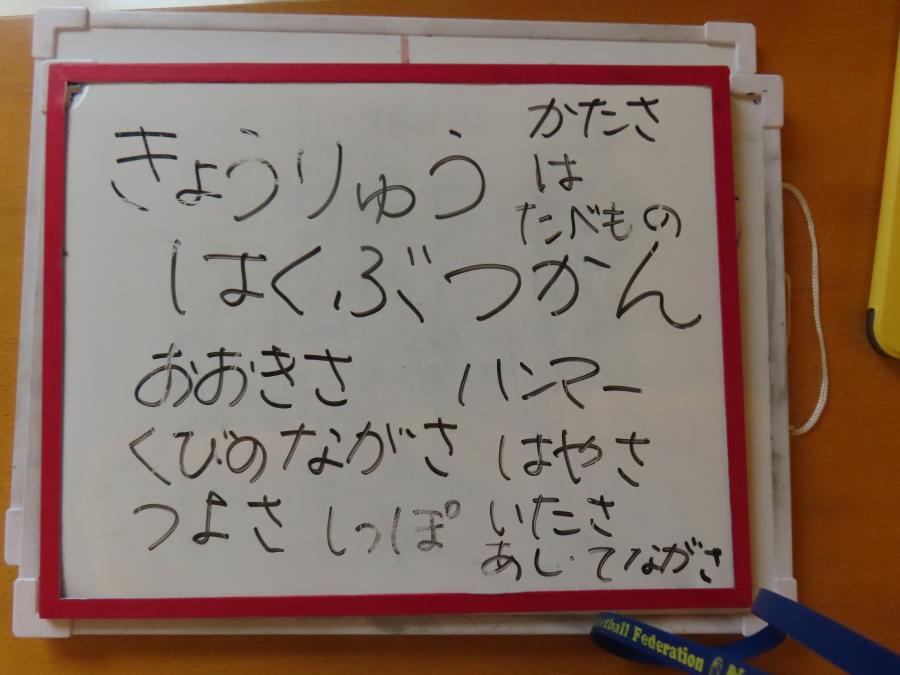 きょうりゅう
はくぶつかん
かたさ
は
たべもの
おおきさ
ハンマー
くびのながさ
はやさ
つよさ
しっぽ
いたさ
あし・てながさ
Football Federation